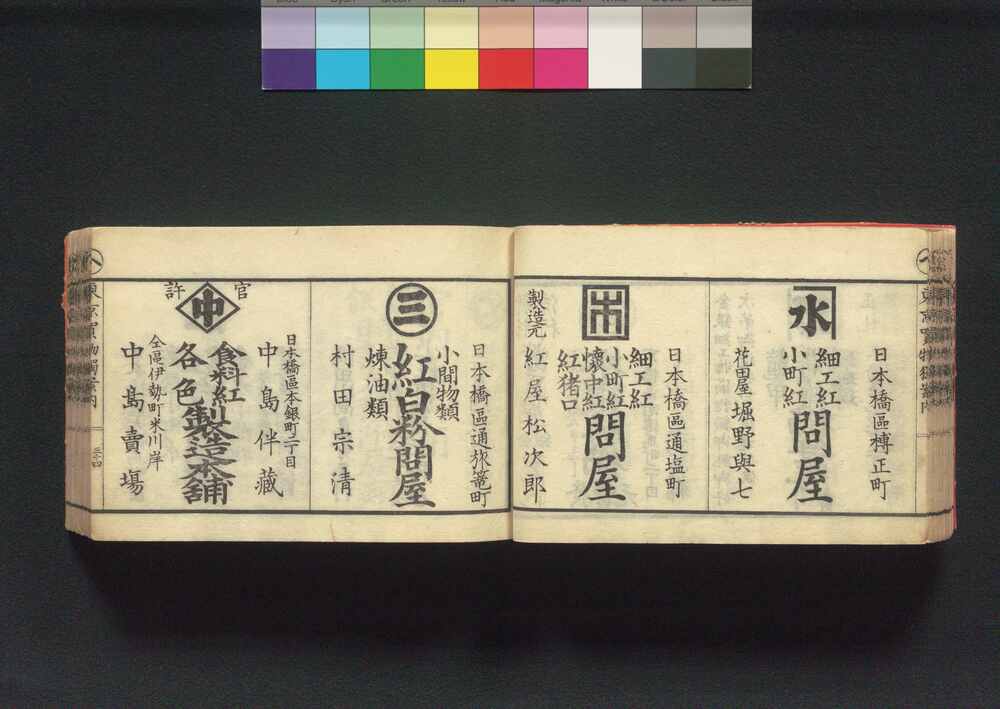 日本橋區榑正町
水
細工紅
小町紅
問屋
花田屋 堀野與七
日本橋區通塩町
本
細工紅
小町紅
懷中紅
紅猪口
問屋
製造元 紅屋松次郎
日本橋區通旅篭町
三
小間物類
紅白粉問屋
煉油類
村田宗清
日本橋區本銀町二丁目
中島伴藏
官許
中
食料紅
各色
製造本舖
仝區伊勢町米川岸
中島賣場